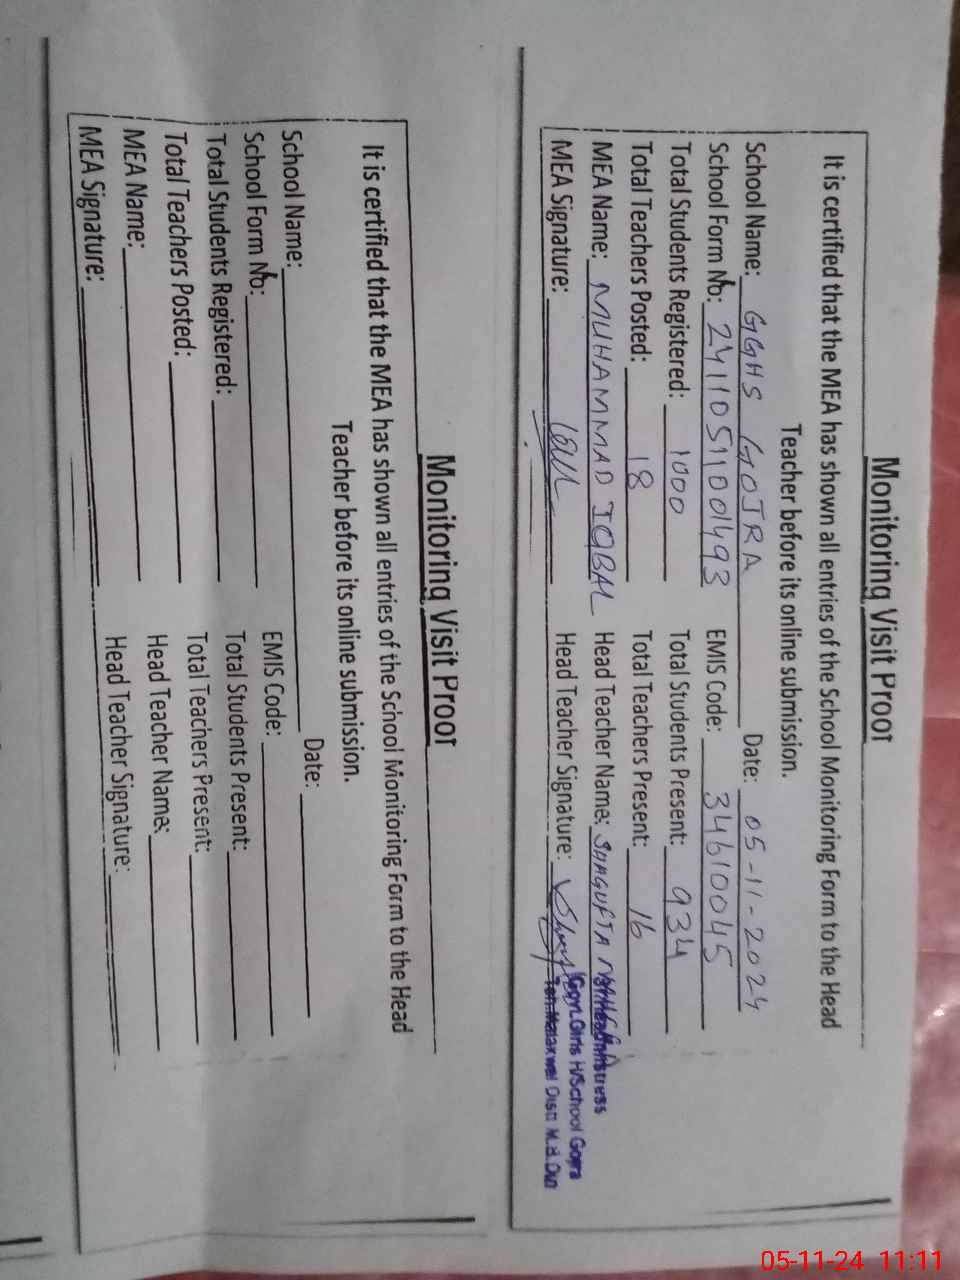 Monitoring Visit Proof
It is certified that the MEA has shown all entries of the School Monitoring Form to the Head
Teacher before its online submission.
School Name: GGHS GOJRA Date: 05-11-2024
School Form No: 24110511001493 EMIS Code: 34610045
Total Students Registered: 1000 Total Students Present: 934
Total Teachers Posted: 18 Total Teachers Present: 16
MEA Name: MUHAMMAD IQBAL Head Teacher Name: SHAGUFTA
MEA Signature: Head Teacher Signature:
Headmistress
Govt. Girls H/School Gojra
Teh. Malakwal Distt M.B.Din
Monitoring Visit Proof
It is certified that the MEA has shown all entries of the School Monitoring Form to the Head
Teacher before its online submission.
School Name: Date:
School Form No: EMIS Code:
Total Students Registered: Total Students Present:
Total Teachers Posted: Total Teachers Present:
MEA Name: Head Teacher Name:
MEA Signature: Head Teacher Signature:
05-11-24 11:11